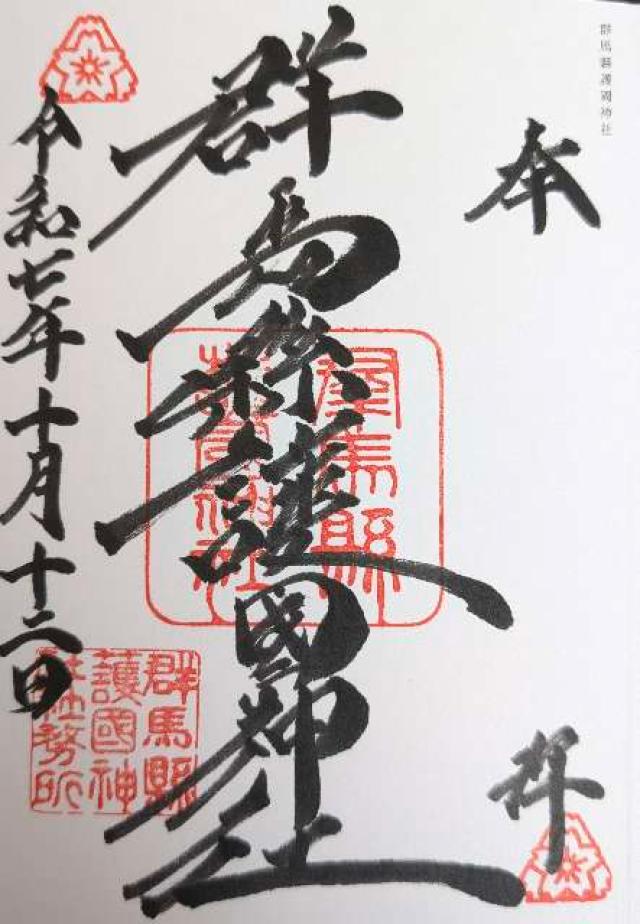 群馬縣護國神社
奉拝
群馬縣護國神社
群馬縣
護國神社
令和七年十月十二日
群馬縣
護國神
社社務所